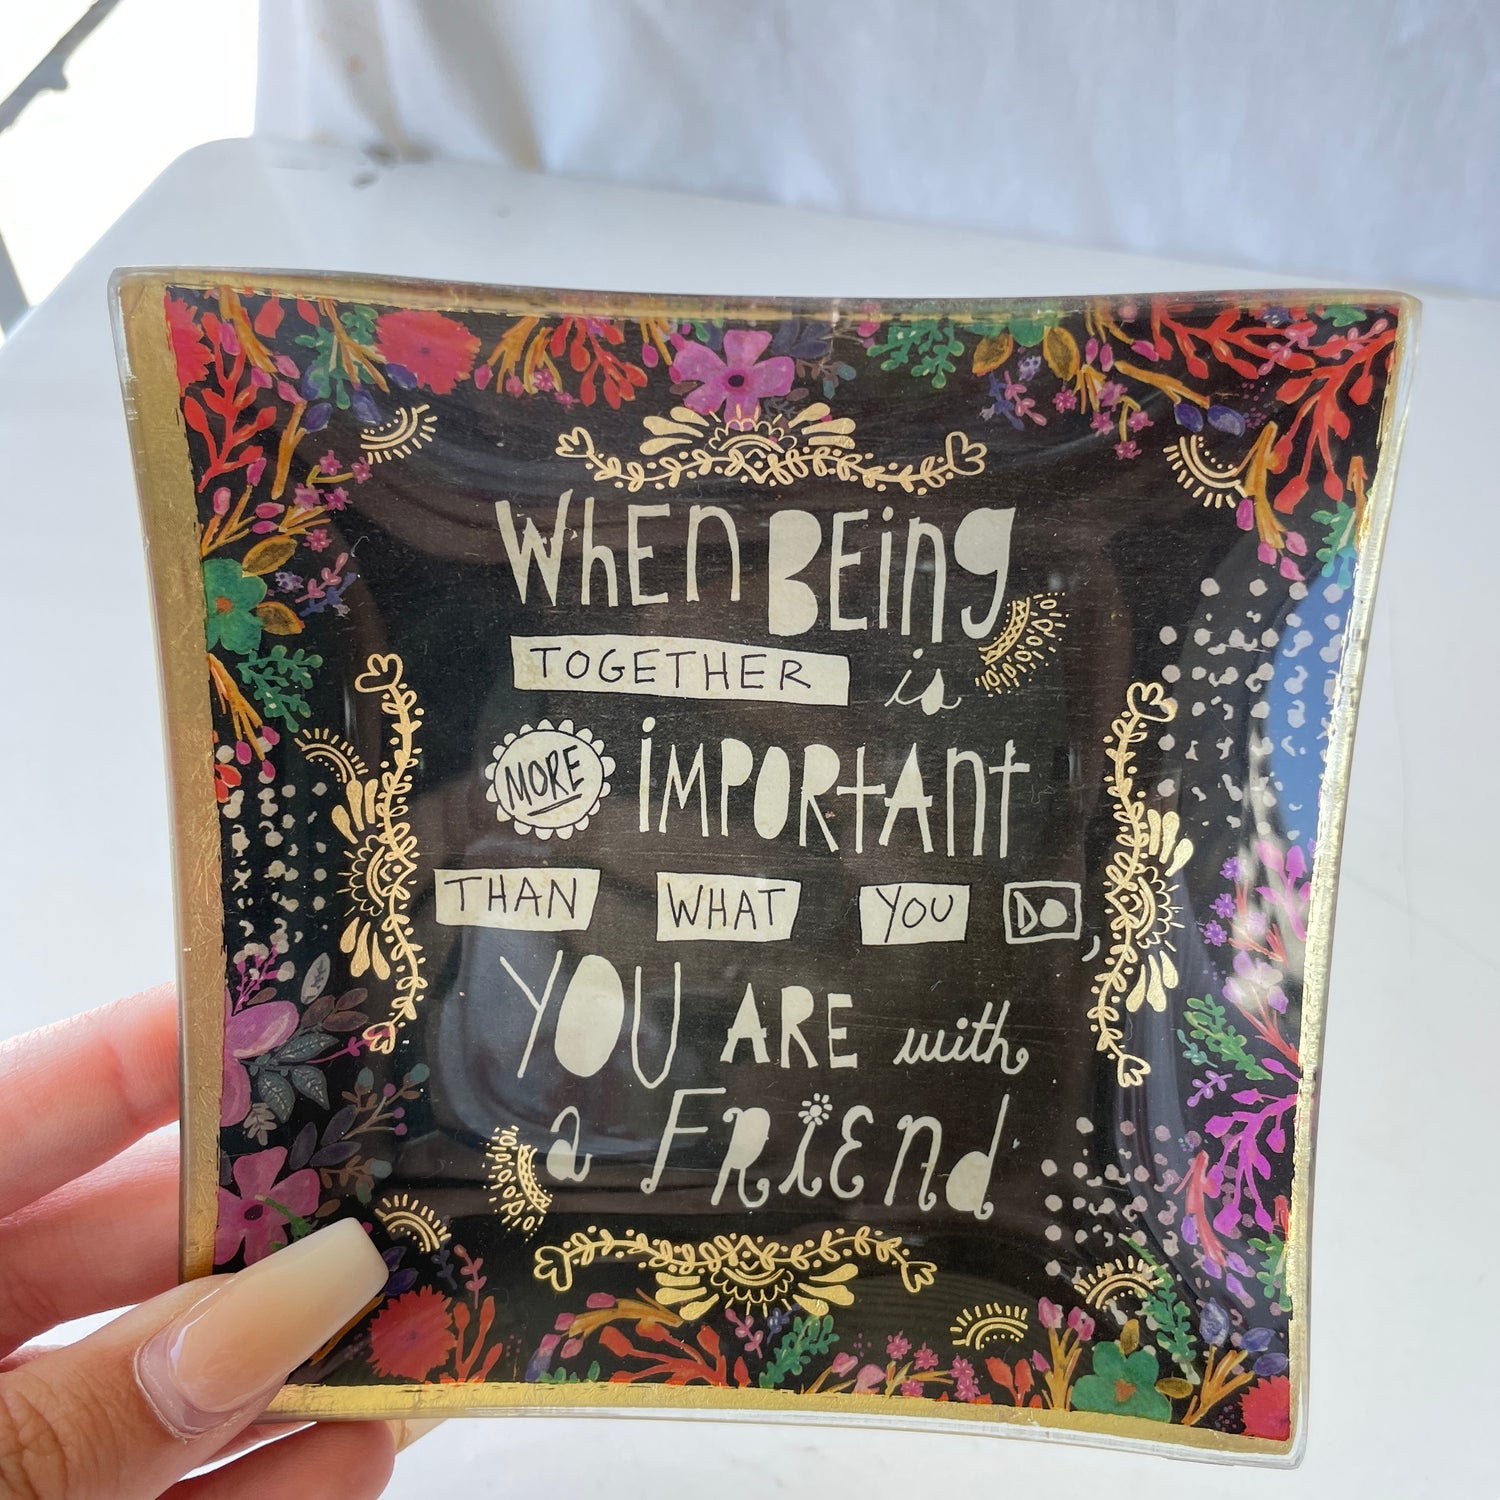 WhEn BEing
TOGETHER is
MORE iMPORtAnt
THAN WHAT YOU DO,
YOU ARE with
a FRiEnd